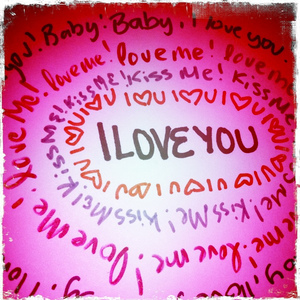 you! Baby! Baby, I love you.
love me! love me! love me! love me! love me! love me! love me!
Kiss Me! Kiss Me! Kiss Me! Kiss Me! Kiss Me! Kiss Me! Kiss Me!
I ♡ U I ♡ U I ♡ U I ♡ U I ♡ U I ♡ U I ♡ U I ♡ U
I LOVE YOU